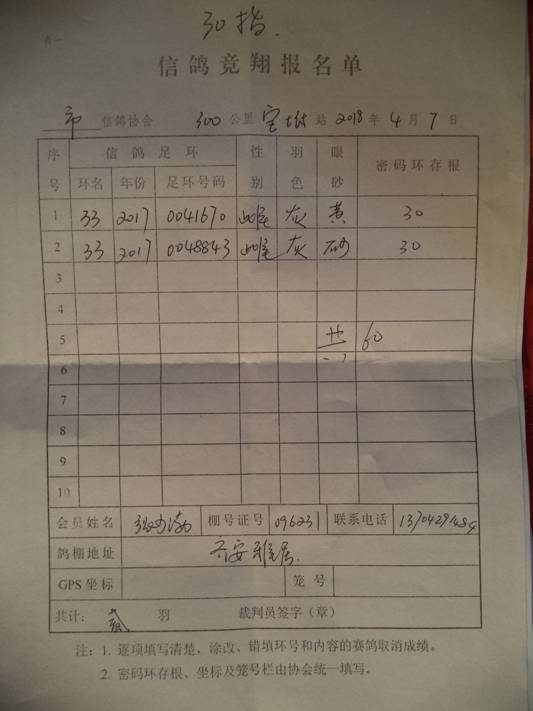 30指.
表一
信鸽竞翔报名单
市 信鸽协会 300 公里 宝坻 站 2018 年 4 月 7 日
序号 信鸽足环 性别 羽色 眼砂 密码环存根
环名 年份 足环号码
1 33 2017 0041670 雌 灰 黄 30
2 33 2017 0048843 雌 灰 砂 30
3
4
5 共 60
6
7
8
9
10
会员姓名 棚号证号 096231 联系电话
鸽棚地址 雅居
GPS 坐标 笼号
共计： 贰 羽 裁判员签字（章）
注：1. 逐项填写清楚，涂改、错填环号和内容的赛鸽取消成绩。
2. 密码环存根、坐标及笼号栏由协会统一填写。